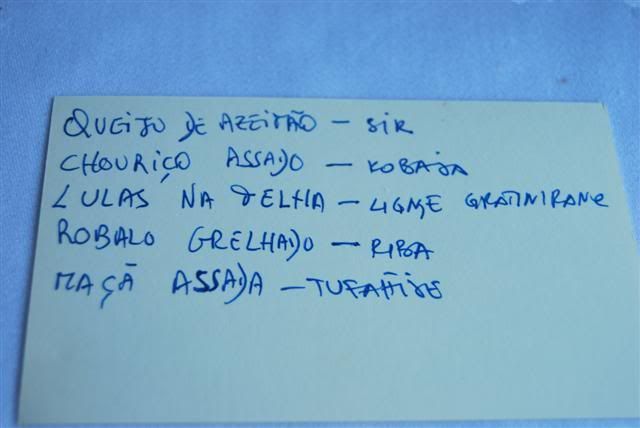 QUEIJO DE AZEITÃO – SIR
CHOURIÇO ASSADO – KOBAJA
LULAS NA TELHA – LIGNJE GRATINIRANE
ROBALO GRELHADO – RIBA
MAÇÃ ASSADA – TUFAHIJE